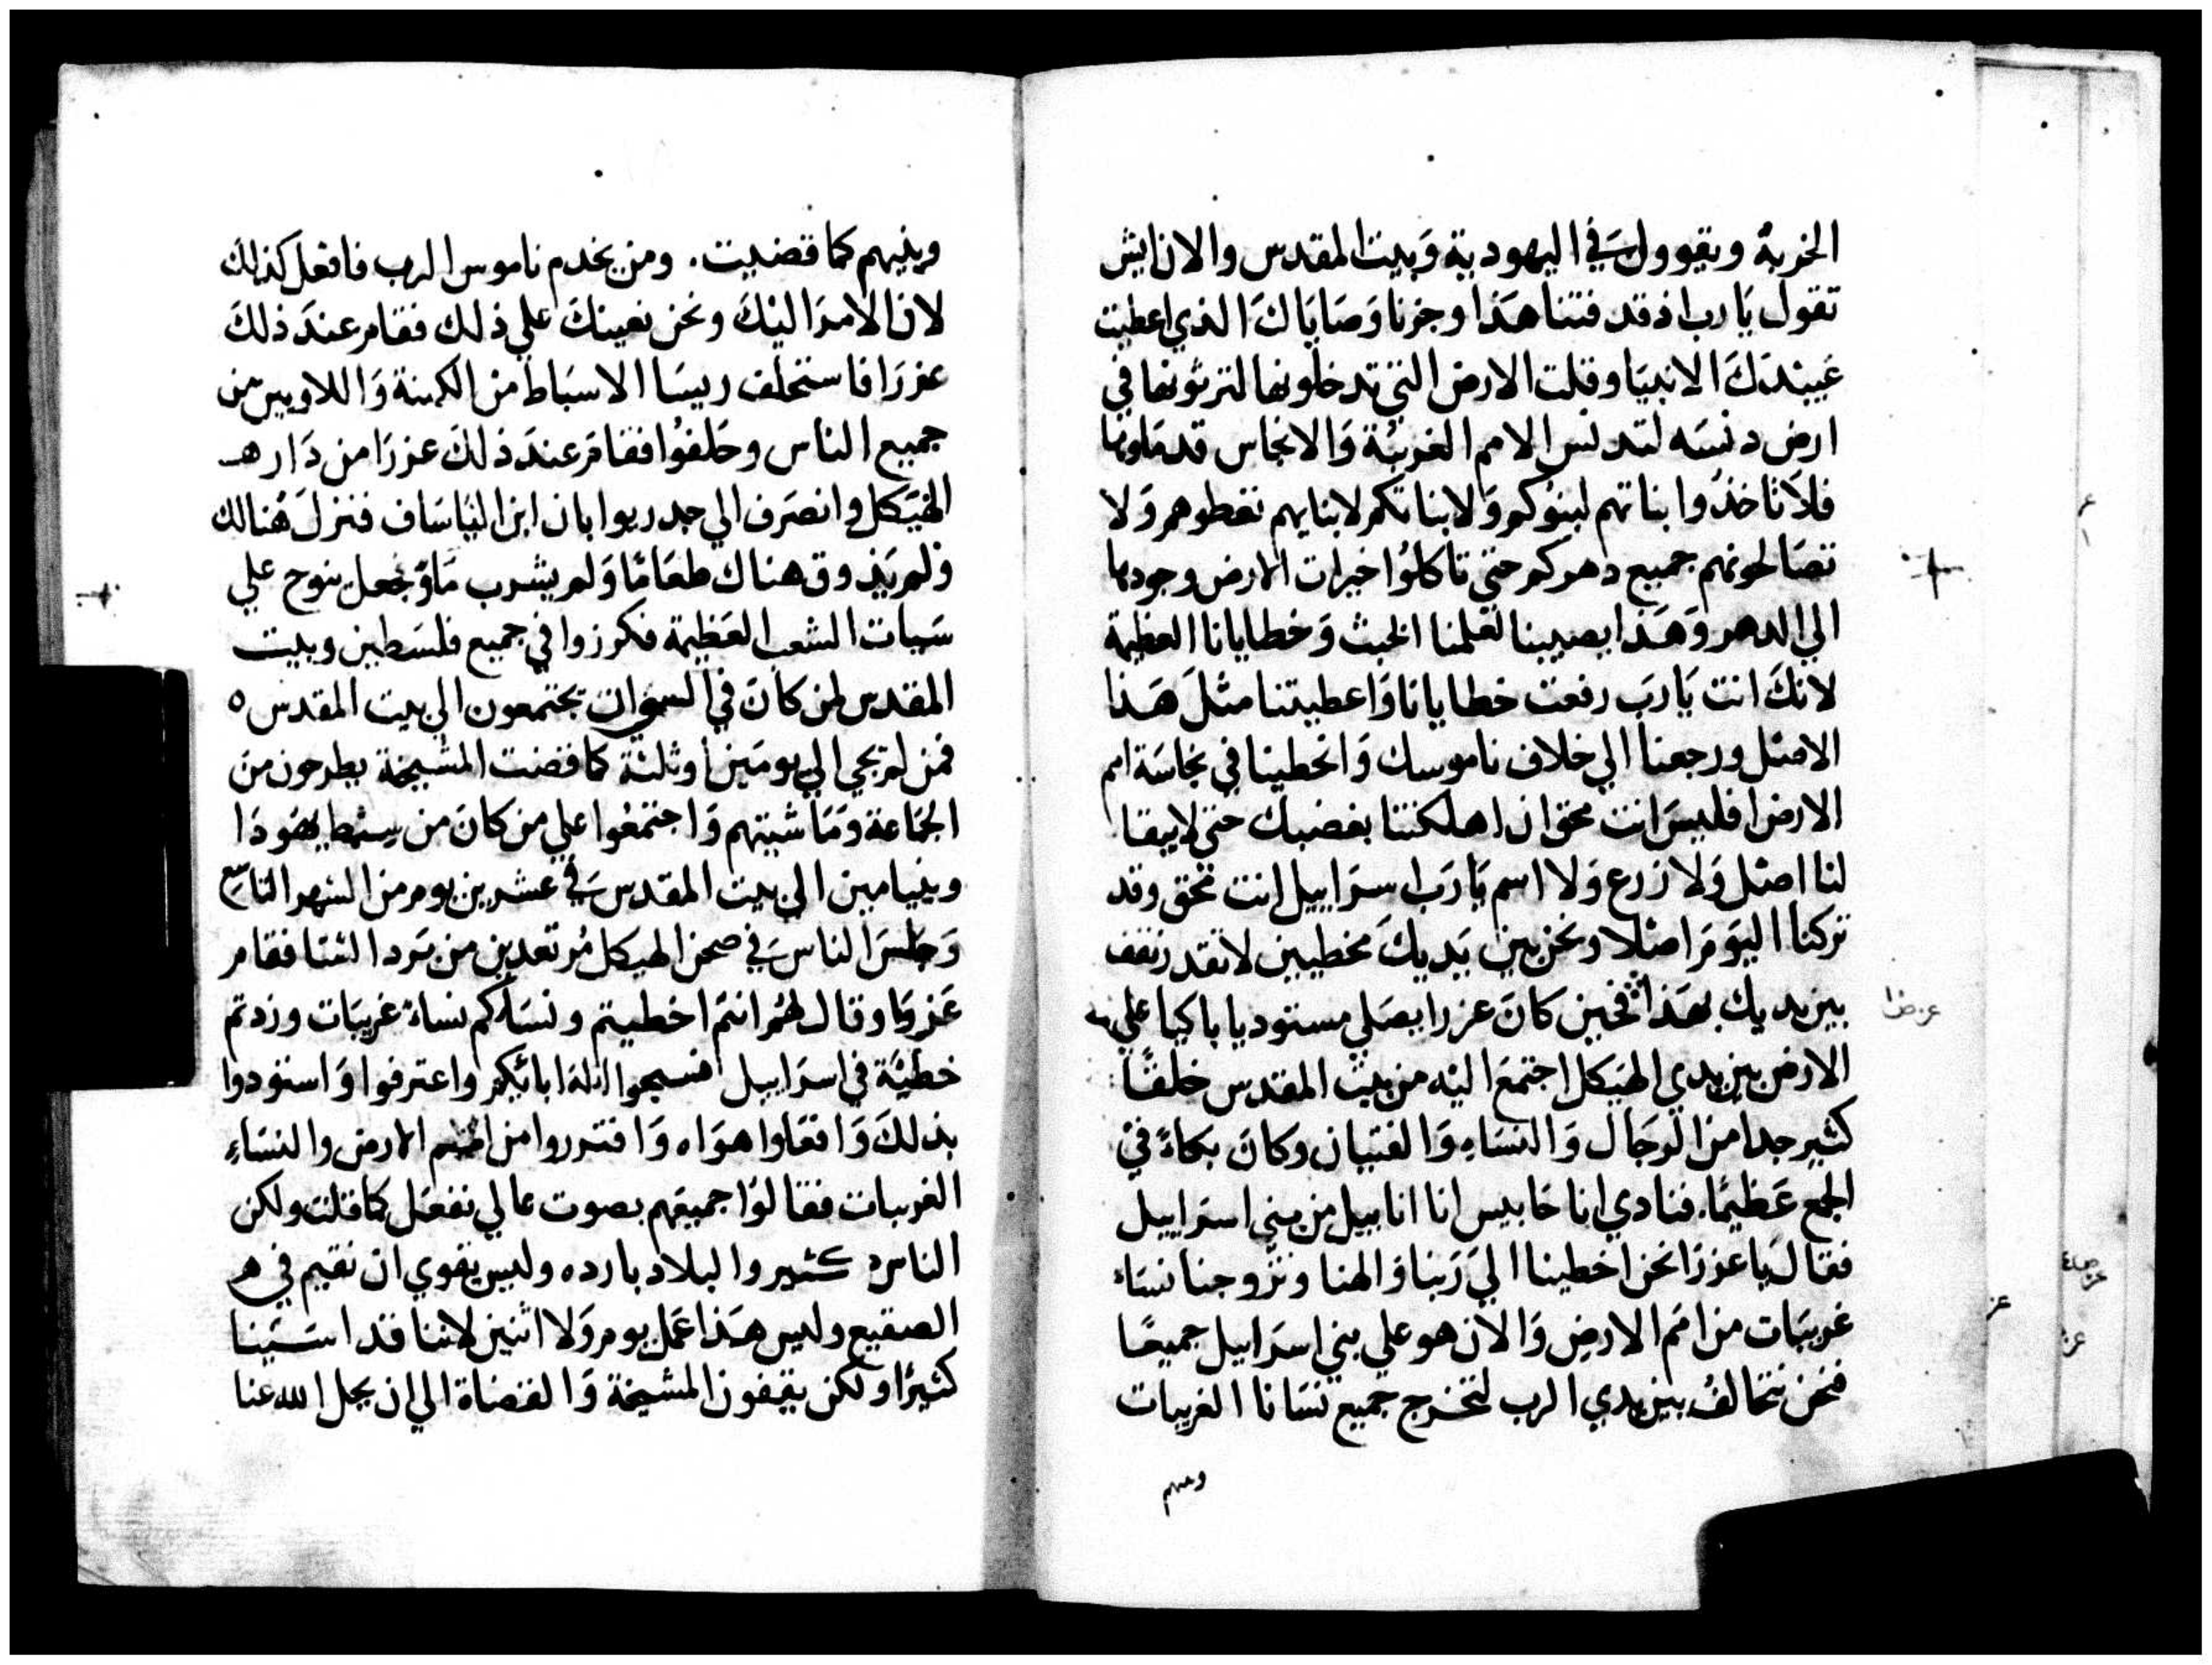 الخربة ويقوول في اليهودية وبيت المقدس والان ايش
تقول يا رب اذ قد فتنا هذا وجزنا وصاياك الذي اعطيت
عبيدك الانبيا وقلت الارض التي تدخلونها لترثونها في
ارض دنسه لتدنس الامم الغريبة والانجاس قد ملونها
فلا تاخذوا بناتهم لبنوكم ولا بناتكم لابنايهم تعطوهم ولا
تصالحونهم جميع دهركم حتى تاكلوا خيرات الارض وجودها
الي الدهر وهذا يصيبنا لعملنا الخبث وخطايانا العظيمة
لانك انت يا رب رفعت خطايانا واعطيتنا مثل هذا
الاصل ورجعنا الي خلاف ناموسك وانخطينا في نجاسة امم
الارض فليس انت محق ان اهلكتنا بغضبك حتى لا يبقا
لنا اصل ولا زرع ولا اسم يا رب اسراييل انت محق وقد
تركنا اليوم اصلا ونحن بين يديك مخطيين لا نقدر نقف
بين يديك بهذا فحين كان عزرا يصلي مستوديا باكيا علي
الارض بين يدي الهيكل اجتمع اليه من بيت المقدس خلقًا
كثير جدا من الرجال والنساء والفتيان وكان بكاء في
الجمع عظيمًا. فنادي انا حابيس انا انابيل من بني اسراييل
فقال يا عزرا نحن اخطينا الي ربنا والهنا وتزوجنا نساء
غريبات من امم الارض والان هو علي بني اسراييل جميعًا
فنحن نتحالف بين يدي الرب لتخرج جميع نسانا الغريبات
وبنيهم كما قضيت. ومن يخدم ناموس الرب فافعل كذلك
لان الامر اليك ونحن نعينك علي ذلك فقام عند ذلك
عزرا فاستحلف ريسا الاسباط من الكهنة واللاويين من
جميع الناس وحلفوا فقام عند ذلك عزرا من دار هـ
الهيكل وانصرف الي جدريوا بان ابن الياساف فنزل هنالك
ولم يذوق هناك طعامًا ولم يشرب ماؤ فجعل ينوح علي
سيات الشعب العظيمة فكرزوا في جميع فلسطين وبيت
المقدس لمن كان في السبي ان يجتمعون الي بيت المقدس ه
فمن لم يجي الي يومين او ثلثة كما قضت المشيخة يطرحون من
الجماعة وماشيتهم واجتمعوا علي من كان من سبط يهودا
وبنيامين الي بيت المقدس في عشرين يوم من الشهر التاسع
وجلس الناس في صحن الهيكل مرتعدين من برد الشتا فقام
عزرا وقال لهم انتم اخطيتم ونساكم نساء غريبات وزدتم
خطية في اسراييل فسبحوا اله ابائكم واعترفوا واستودوا
بذلك وافعلوا هواه وافترروا من امم الارض والنساء
الغريبات فقالوا جميعهم بصوت عالي نفعل كما قلت ولكن
الناس كثير والبلاد بارده وليس يقوي ان نقيم في هـ
الصقيع وليس هذا عمل يوم ولا اثنين لاننا قد اسينا
كثيرًا ولكن يقيفون المشيخة والقضاة الي ان يحل الله عنا